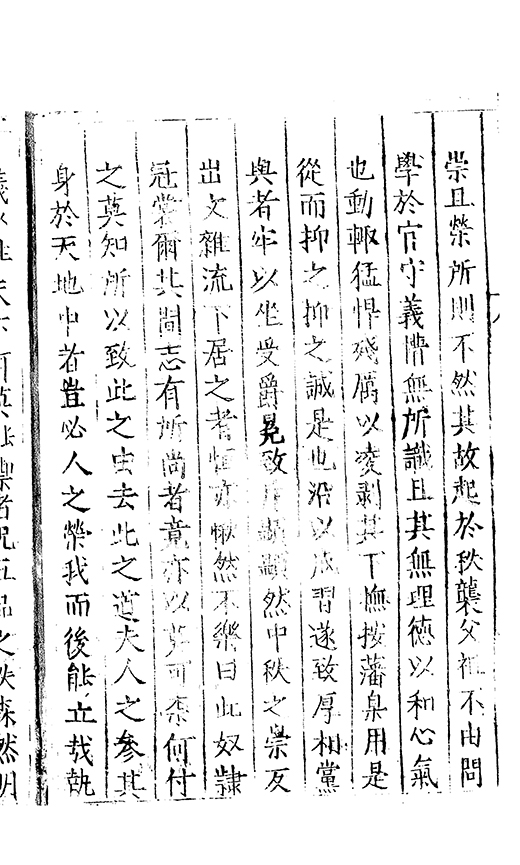 崇且榮所則不然其故起於秩襲父祖不由問
學於官守義懵無所識且其無理德以和心氣
也動輒猛悍殘厲以凌剥其下撫按藩臬用是
從而抑之抑之誠是也沿以成習遂致厚相黨
與者牢以坐受爵冕致顯然中秩之崇反
出文雜流下居之者恒亦愀然不樂曰此奴隷
冠裳爾其間志有所尚者竟亦以莫可柰何付
之莫知所以致此之由去此之道夫人之參其
身於天地中者豈必人之榮我而後能立哉孰
者況五品之秩森然明